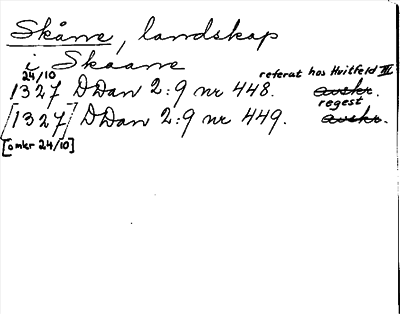 Skåne, landskap
i Skaane
24/10 referat hos Hvitfeld III.
1327 DDan 2:9 nr 448. avskr.
regest
[1327] DDan 2:9 nr 449. avskr.
[omkr 24/10]